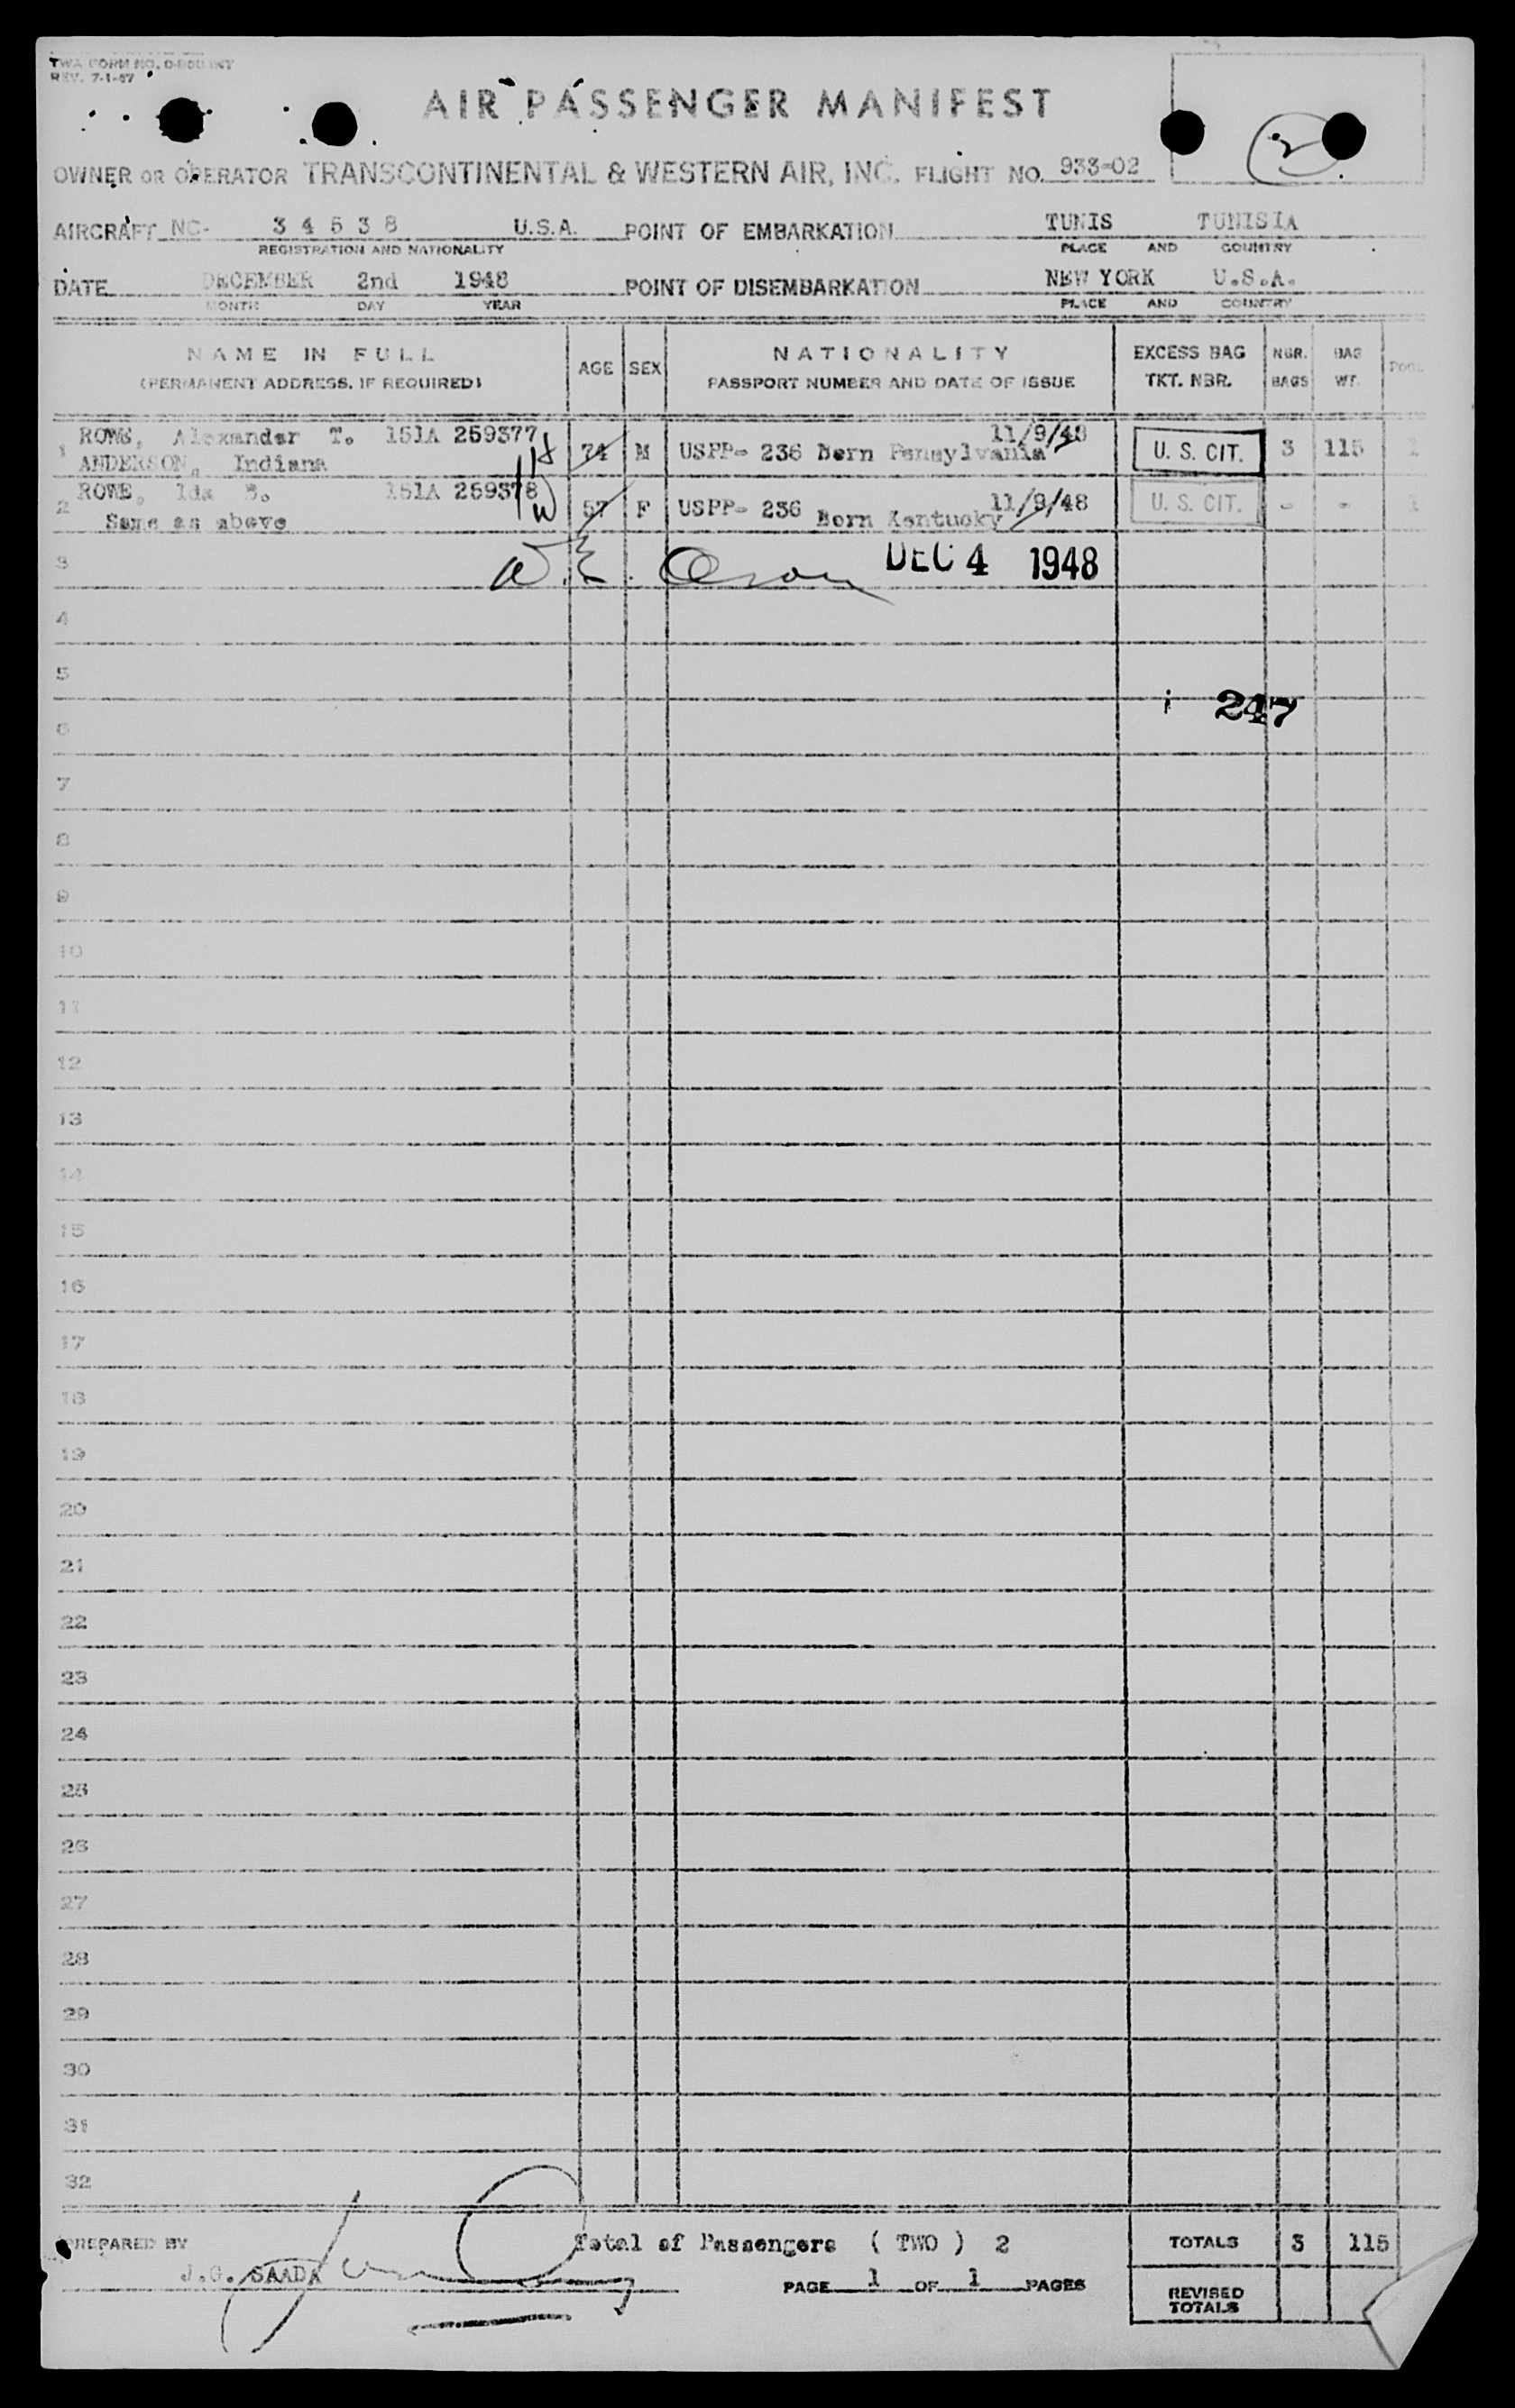 TWA FORM NO.
REV. 7-1-47
AIR PASSENGER MANIFEST
2
OWNER OR OPERATOR TRANSCONTINENTAL & WESTERN AIR, INC. FLIGHT NO. 933-02
AIRCRAFT NC- 34538 U.S.A. POINT OF EMBARKATION TUNIS TUNISIA
REGISTRATION AND NATIONALITY PLACE AND COUNTRY
DATE DECEMBER 2nd 1948 POINT OF DISEMBARKATION NEW YORK U.S.A.
MONTH DAY YEAR PLACE AND COUNTRY
NAME IN FULL AGE SEX NATIONALITY EXCESS BAG NBR. BAG
(PERMANENT ADDRESS, IF REQUIRED) PASSPORT NUMBER AND DATE OF ISSUE TKT. NBR. BAGS WT.
1 ROWE, Alexander T. 151A 259377 H 74 M USPP- 236 Born Pensylvania 11/9/48 U. S. CIT. 3 115 1
ANDERSON, Indiana
2 ROWE, Ida B. 151A 259378 W 57 F USPP- 236 Born Kentucky 11/9/48 U. S. CIT. - - 1
Same as above
3 DEC 4 1948
4
5
6 247
7
8
9
10
11
12
13
14
15
16
17
18
19
20
21
22
23
24
25
26
27
28
29
30
31
32
PREPARED BY Total of Passengers ( TWO ) 2 TOTALS 3 115
J.G. SAADA PAGE 1 OF 1 PAGES REVISED
TOTALS